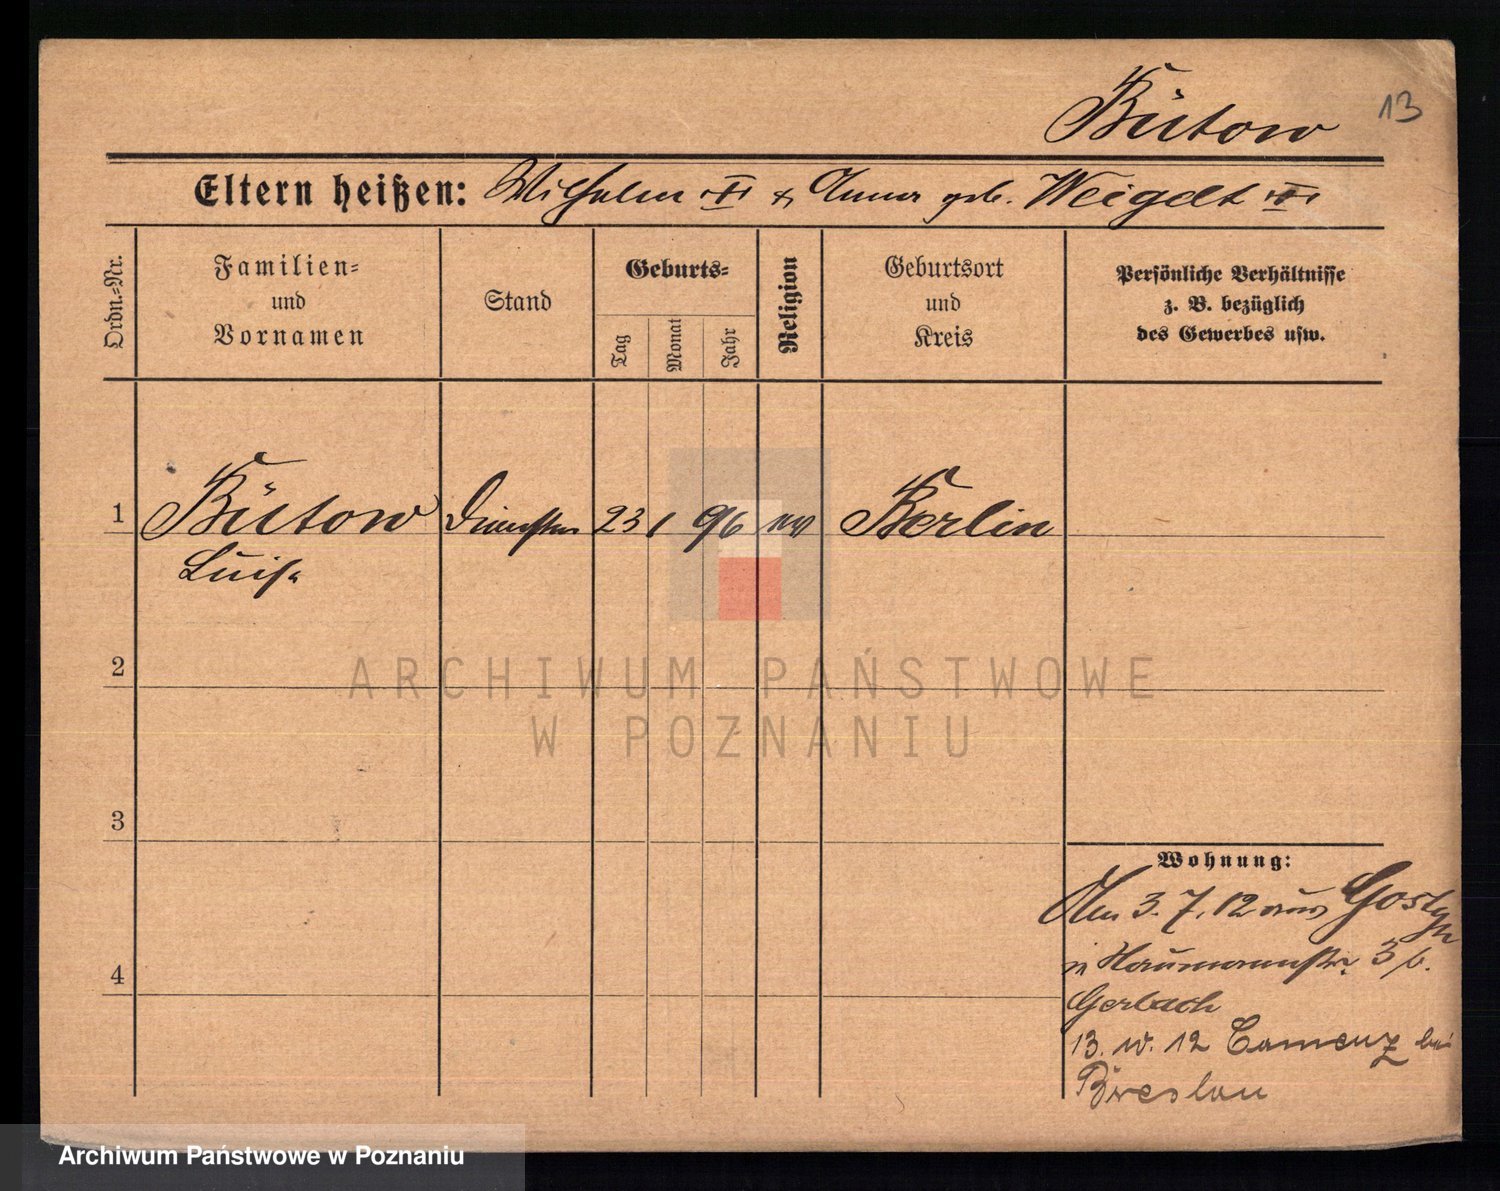 Bütow 13
Eltern heißen: Wilhelm & Anna geb. Weigelt
Ordn.-Nr.
Familien-
und
Vornamen
Stand
Geburts-
Tag
Monat
Jahr
Religion
Geburtsort
und
Kreis
Persönliche Verhältnisse
z. B. bezüglich
des Gewerbes usw.
1 Bütow 23 1 96 ev Berlin
Luise
2
3
4
Wohnung:
Am 3. 7. 12 aus Gostyn
in Naumannstr. 3 b.
Gerlach
13. 10. 12 Camenz bei
Breslau
ARCHIWUM PAŃSTWOWE
W POZNANIU
Archiwum Państwowe w Poznaniu